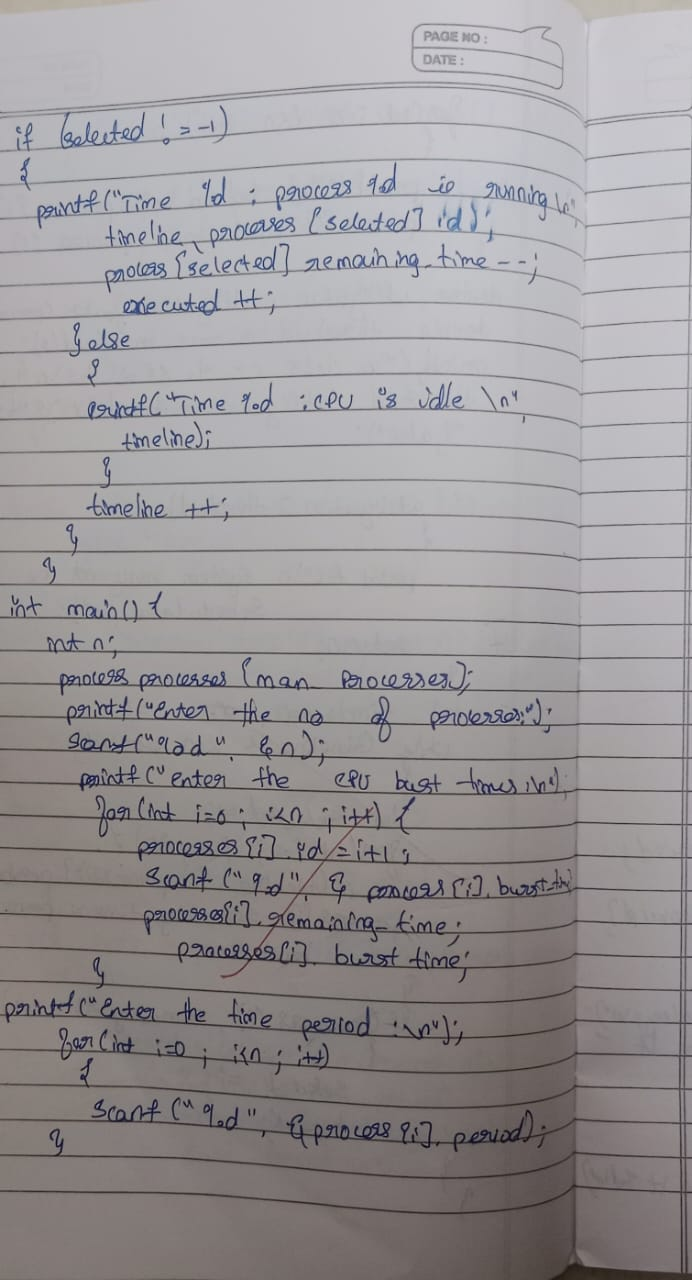 PAGE NO :
DATE :
if (selected ! = -1)
{
printf("Time %d : process %d is running \n",
timeline, processes [selected] id);
process [selected] remaining_time --;
executed ++;
} else
{
printf("Time %d : CPU is idle \n",
timeline);
}
timeline ++;
}
}
int main() {
int n;
process processes [man_processes];
printf("enter the no of processes:");
scanf("%d", &n);
printf("enter the CPU bust times :\n");
for(int i=0 ; i<n ; i++) {
processes [i]. id = i+1 ;
scanf ("%d", & process [i]. burst_time
processes[i]. remaining_time ;
processes[i]. burst time;
}
printf("enter the time period :\n");
for(int i=0 ; i<n ; i++)
{
scanf ("%d", & process [i]. period);
}